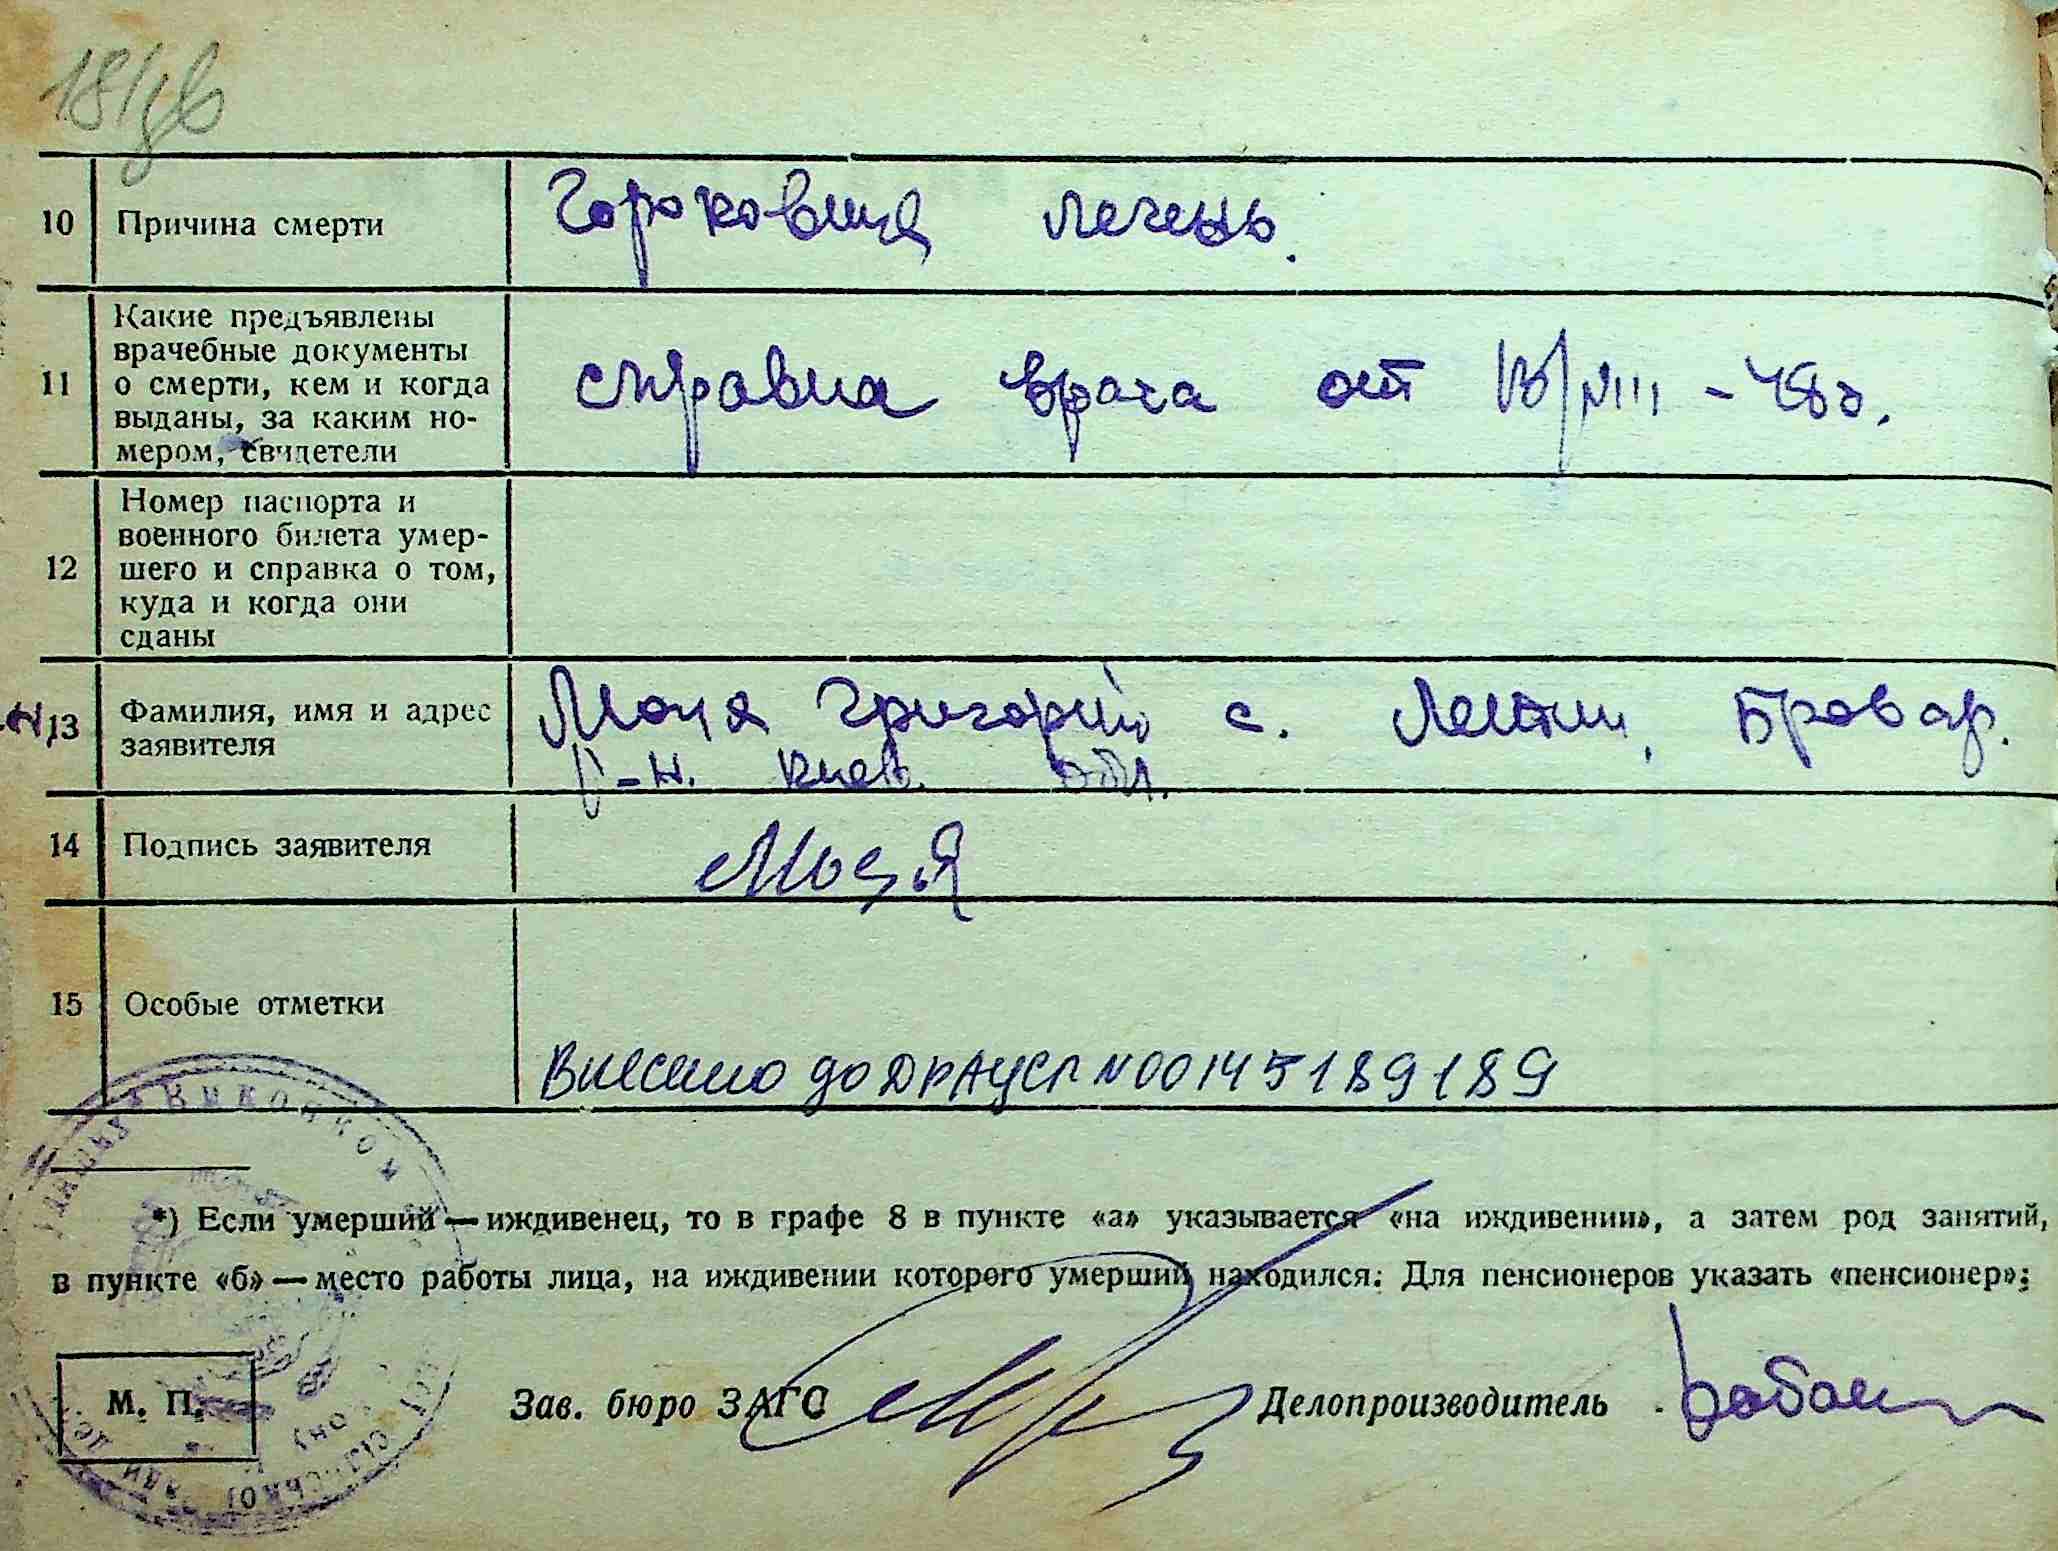 10 Причина смерти
печень.
11 Какие предъявлены
врачебные документы
о смерти, кем и когда
выданы, за каким но-
мером, свидетели
справка врача от VIII - 48г.
12 Номер паспорта и
военного билета умер-
шего и справка о том,
куда и когда они
сданы
13 Фамилия, имя и адрес
заявителя
Моця Григорий с. Бровар.
р-н. Киев. обл.
14 Подпись заявителя
Моця
15 Особые отметки
Внесено до ДРАЦСГ N 00145189189
*) Если умерший — иждивенец, то в графе 8 в пункте «а» указывается «на иждивении», а затем род занятий,
в пункте «б» — место работы лица, на иждивении которого умерший находился. Для пенсионеров указать «пенсионер»;
М. П.
Зав. бюро ЗАГС
Делопроизводитель